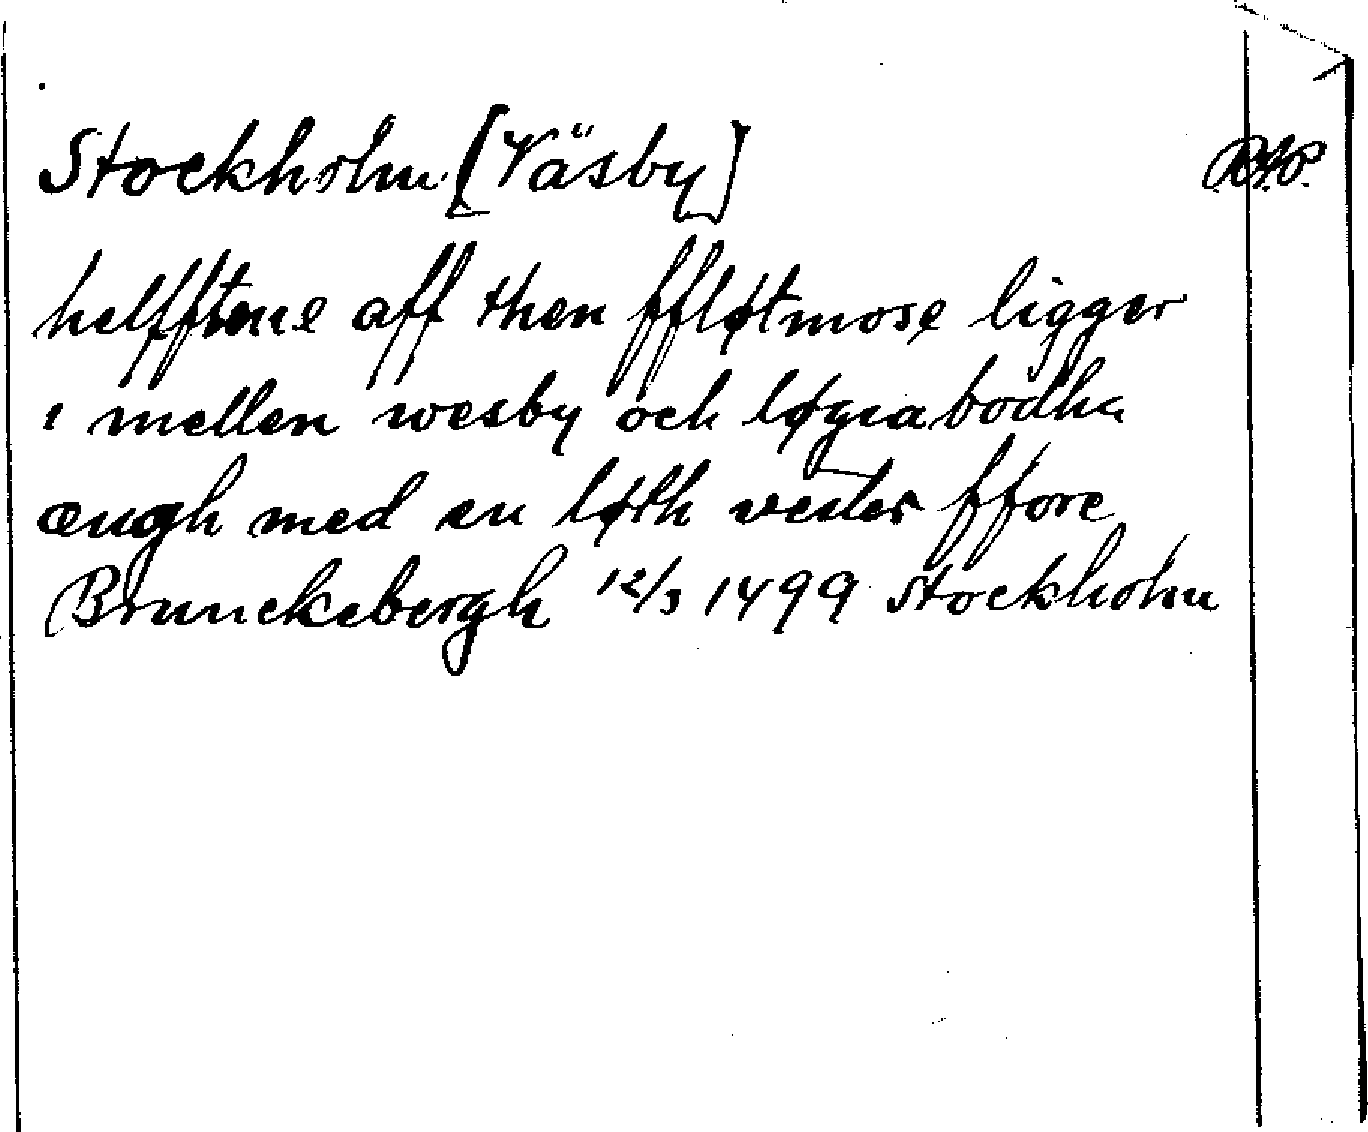 Stockholm [Väsby] RAP.
helfftene aff then ffløtmose ligger
i mellen wesby och løgnabodha
œngh med en løth vester ffore
Brunckebergh 12/3 1499 Stockholm